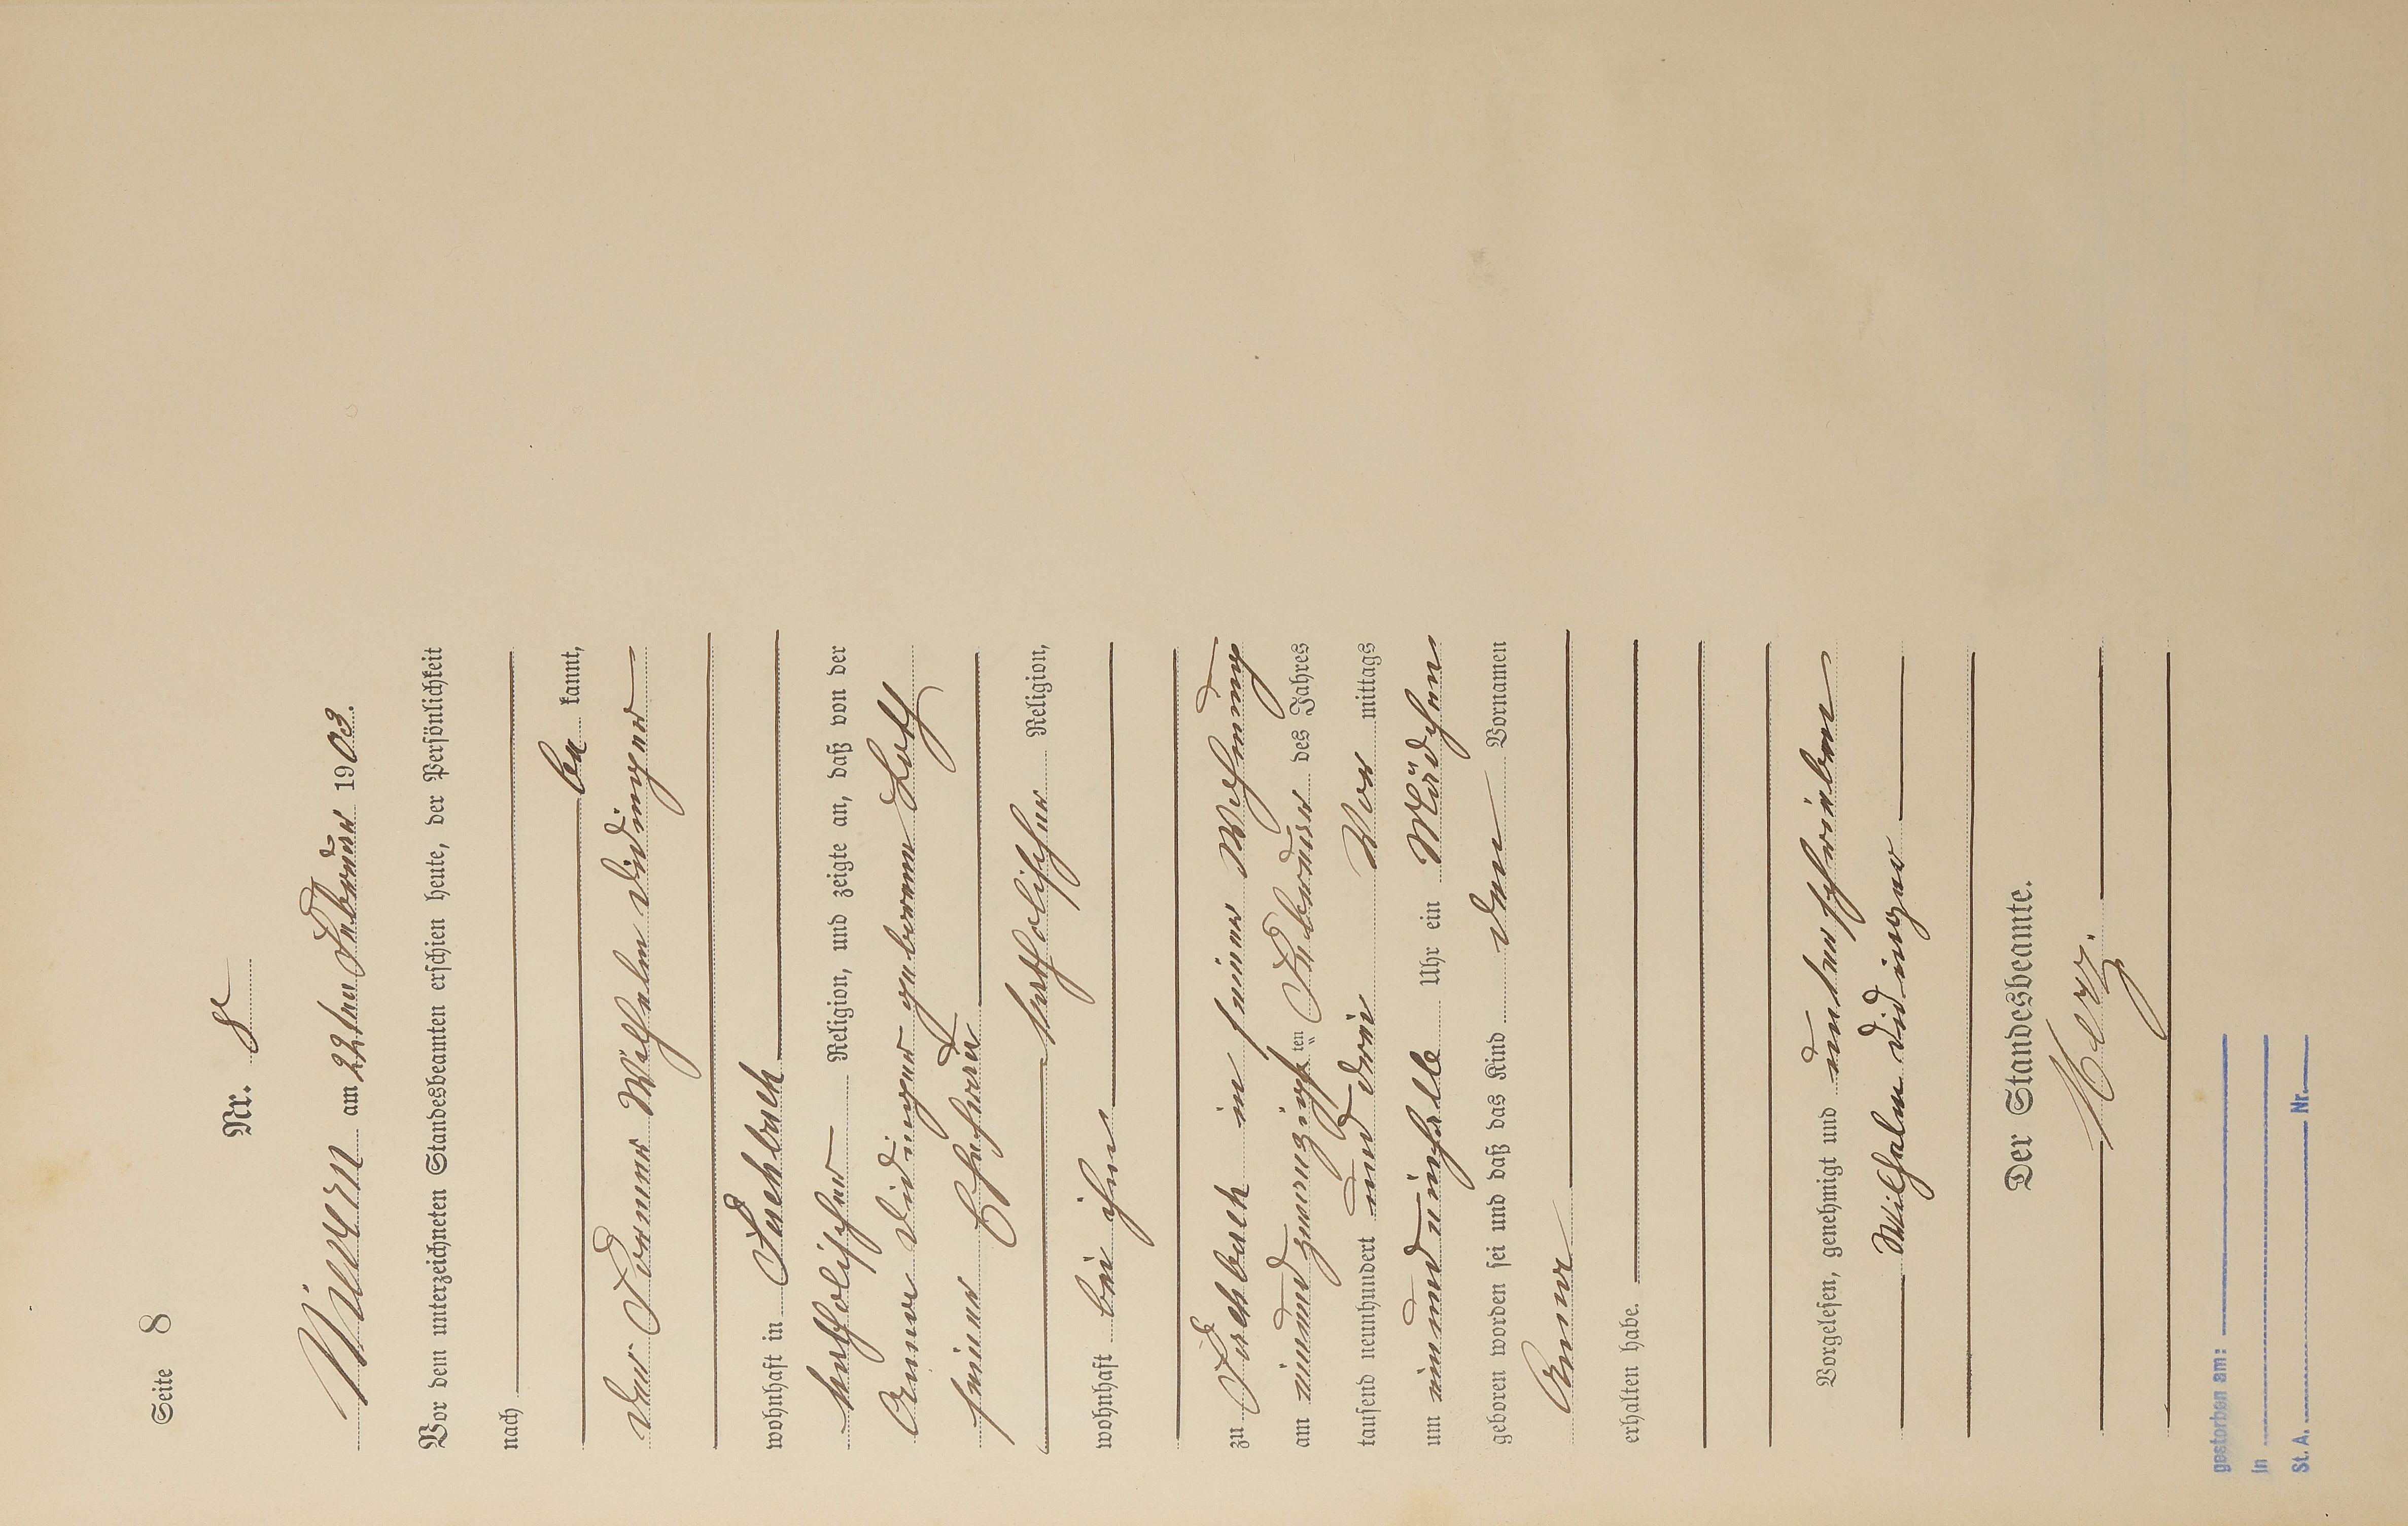 Seite 8
Nr. 8
Nievern am 22ten Februar 1903.
Vor dem unterzeichneten Standesbeamten erschien heute, der Persönlichkeit
nach
be kannt,
der Former Wilhelm Didinger
wohnhaft in Fachbach
katholischer Religion, und zeigte an, daß von der
Anna Didinger geborenen Loth
seiner Ehefrau
katholischer Religion,
wohnhaft bei ihm
zu Fachbach in seiner Wohnung
am einundzwanzigsten ten Februar des Jahres
tausend neunhundert und drei Vor mittags
um einundeinhalb Uhr ein Mädchen
geboren worden sei und daß das Kind den Vornamen
Anna
erhalten habe.
Vorgelesen, genehmigt und unterschrieben
Wilhelm Didinger
Der Standesbeamte.
gestorben am:
in
St. A. Nr.